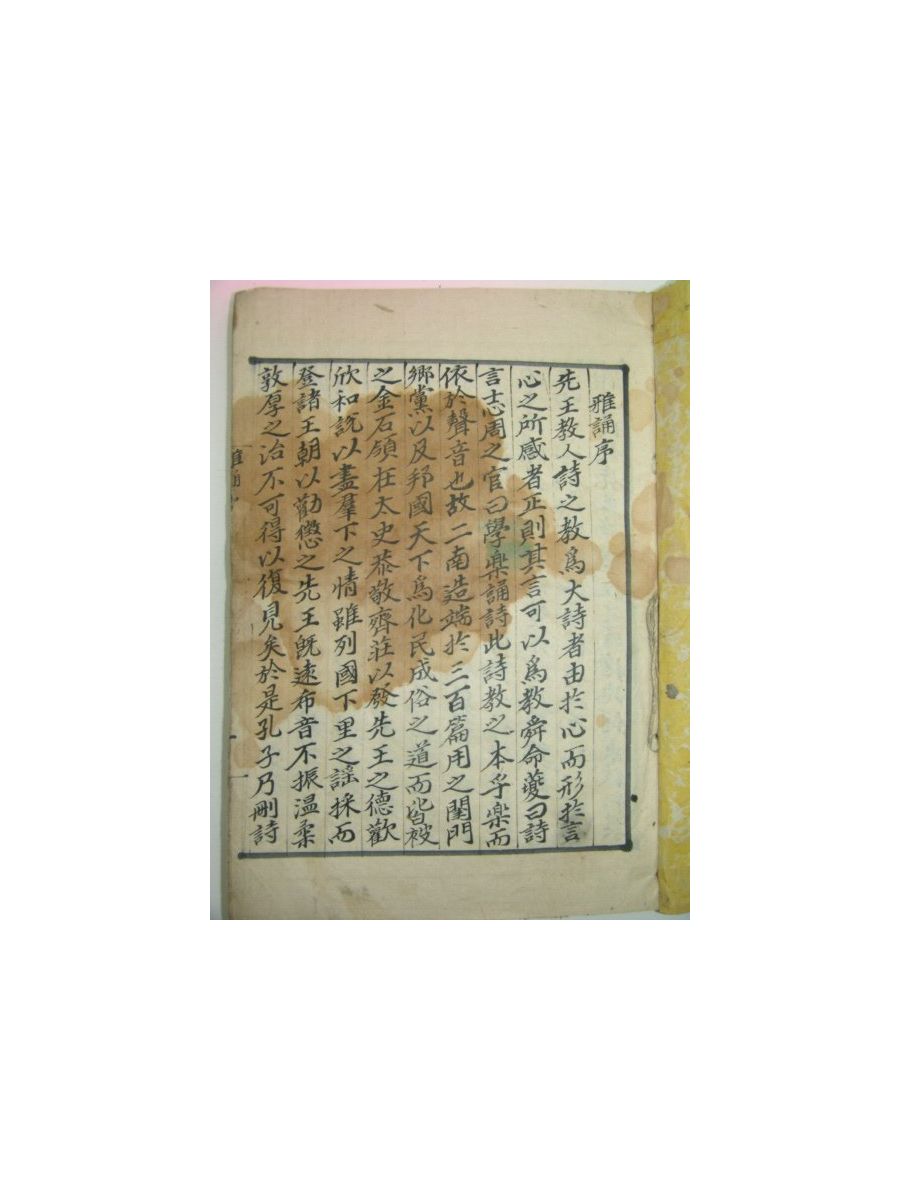 雅誦序
先王敎人詩之敎爲大詩者由於心而形於言
心之所感者正則其言可以爲敎舜命夔曰詩
言志周之官曰學樂誦詩此詩敎之本乎樂而
依於聲音也故二南造端於三百篇用之閨門
鄕黨以及邦國天下爲化民成俗之道而皆被
之金石領在太史恭敬齊莊以發先王之德歡
欣和說以盡羣下之情雖列國下里之謠採而
登諸王朝以勸懲之先王旣遠希音不振溫柔
敦厚之治不可得以復見矣於是孔子乃刪詩